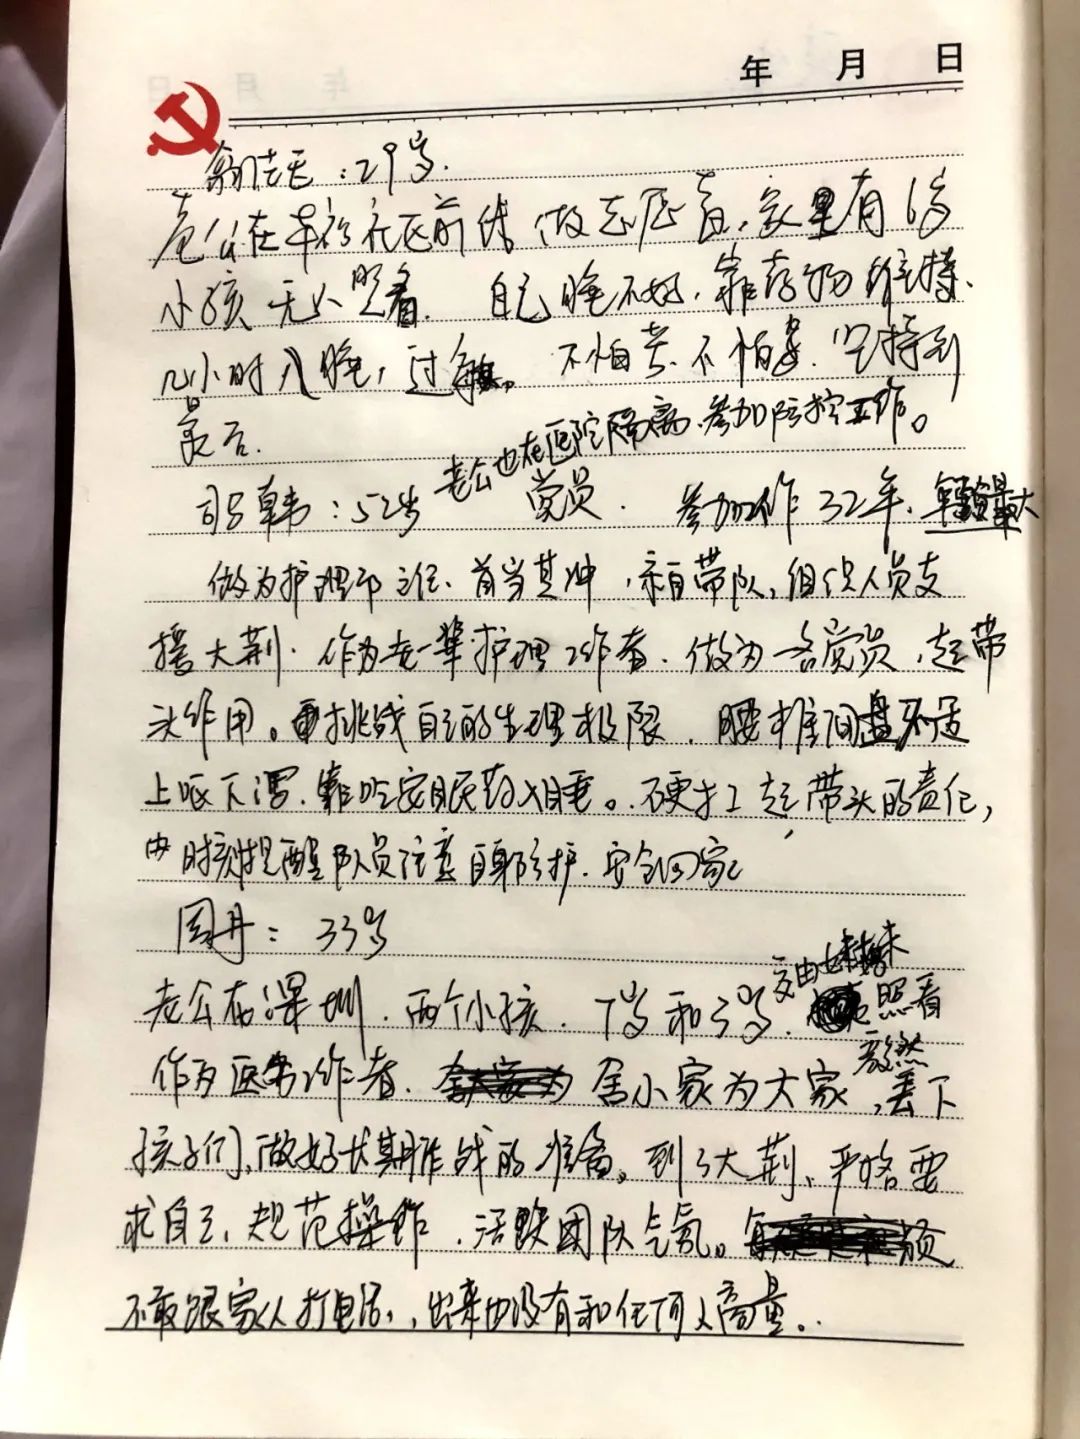 年 月 日
:29岁.
老公在 社区前线做志愿者,家里有6岁
小孩无人照看. 自己睡不好,靠药物维持、
几小时入睡,过敏。不怕苦、不怕累.坚持到
最后.
老公也在医院隔离,参加防控工作。
韩:52岁 党员. 参加工作32年、年龄最大
做为护理部主任、首当其冲,亲自带队,组织人员支
援大荆.作为老一辈护理工作者.做为一名党员,起带
头作用。挑战自己的生理极限.腰椎间盘不适
上呕下泻.靠吃安眠药入睡。硬扛起带头的责任,
时刻提醒队员注意自身防护.安全回家
周丹:33岁
老公在深圳.两个小孩.7岁和3岁.交由妹妹来照看
作为医务工作者.舍小家为大家,毅然丢下
孩子们,做好长期作战的准备。到了大荆、严格要
求自己,规范操作,活跃团队气氛。
不敢跟家人打电话,,出来也没有和任何人商量。